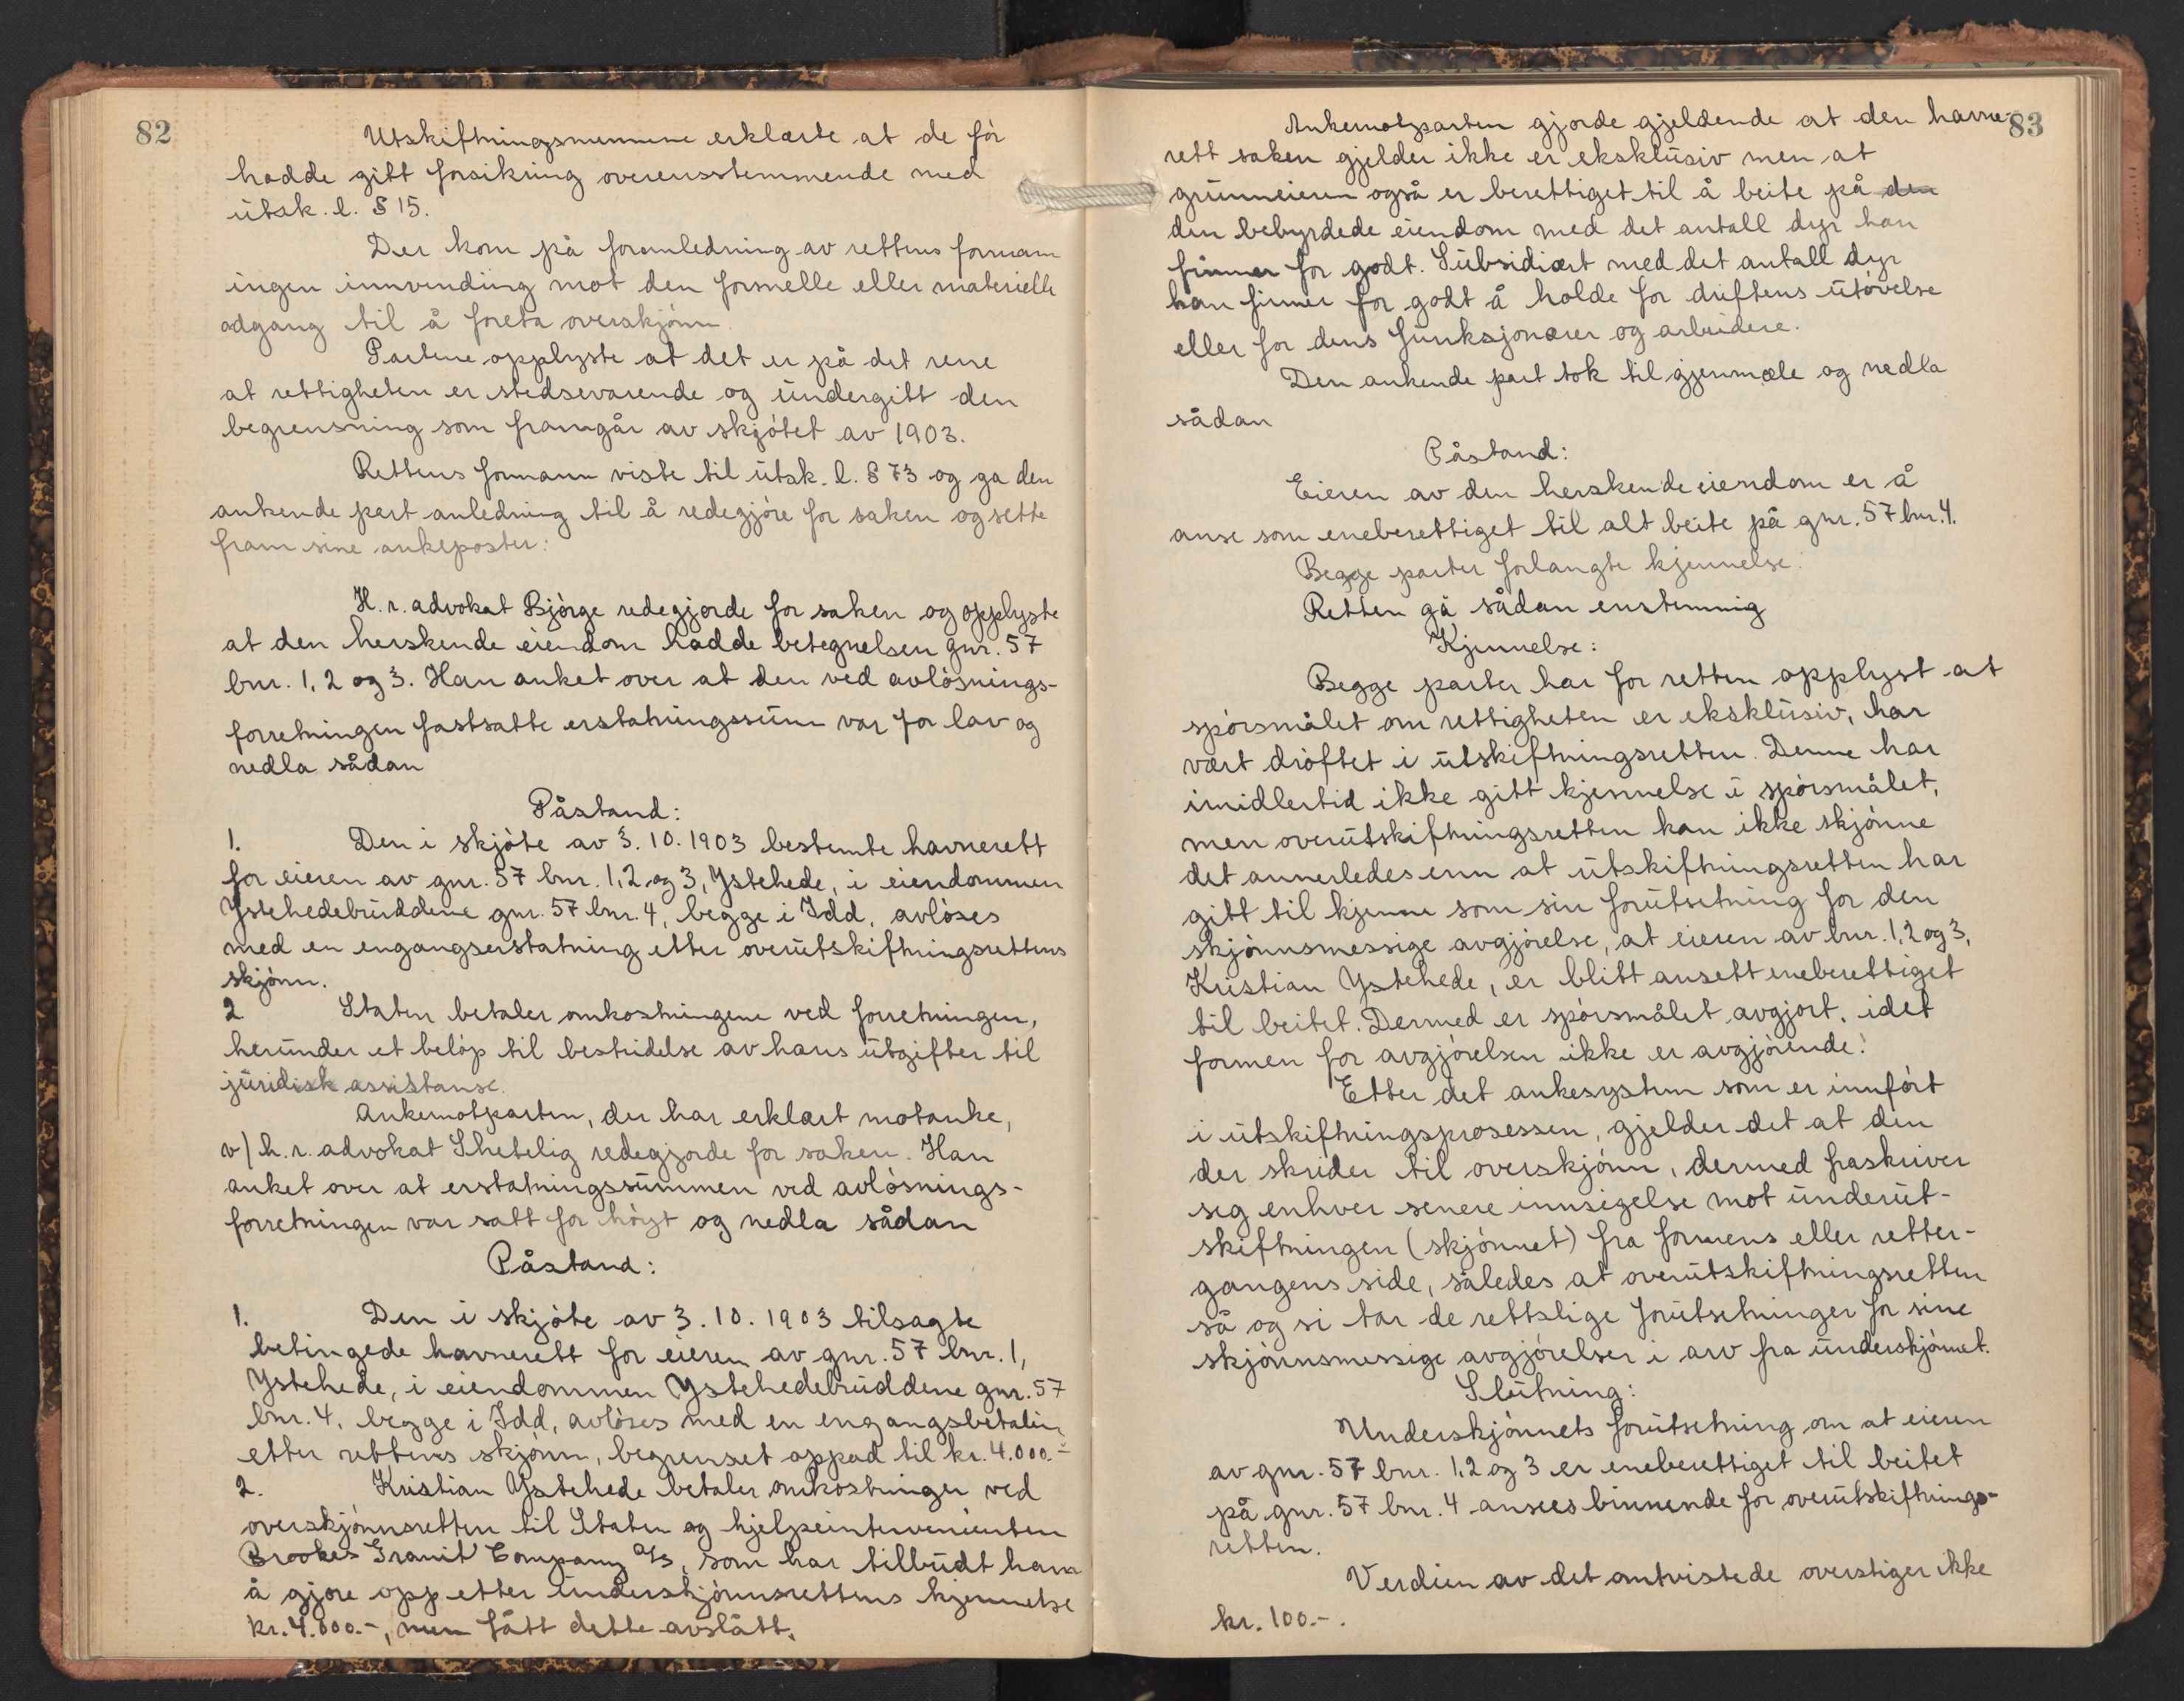 82
Utskiftningsmennene erklærte at de før
hadde gitt forsikring overensstemmende med
utsk. l. § 15.
Der kom på foranledning av rettens formann
ingen innvending mot den formelle eller materielle
adgang til å foreta overskjønn.
Partene opplyste at det er på det rene
at rettigheten er stedsevarende og undergitt den
begrensning som framgår av skjøtet av 1903.
Rettens formann viste til utsk. l. § 73 og ga den
ankende part anledning til å redegjøre for saken og sette
fram sine ankeposter:
H. r. advokat Bjørge redegjorde for saken og opplyste
at den herskende eiendom hadde betegnelsen gnr. 57
bnr. 1, 2 og 3. Han anket over at den ved avløsnings-
forretningen fastsatte erstatningssum var for lav og
nedla sådan
Påstand:
1. Den i skjøte av 3. 10. 1903 bestemte havnerett
for eieren av gnr. 57 bnr. 1, 2 og 3, Ystehede, i eiendommen
Ystehedebruddene gnr. 57 bnr. 4, begge i Idd, avløses
med en engangserstatning etter overutskiftningsrettens
skjønn.
2 Staten betaler omkostningene ved forretningen,
herunder et beløp til bestridelse av hans utgifter til
juridisk assistanse.
Ankemotparten, der har erklært motanke,
v/ h. r. advokat Shetelig redegjorde for saken. Han
anket over at erstatningssummen ved avløsnings-
forretningen var satt for høyt og nedla sådan
Påstand:
1. Den i skjøte av 3. 10. 1903 tilsagte
betingede havnerett for eieren av gnr. 57 bnr. 1,
Ystehede, i eiendommen Ystehedebruddene gnr. 57
bnr. 4, begge i Idd, avløses med en engangsbetaling
etter rettens skjønn, begrenset oppad til kr. 4.000.-
2. Kristian Ystehede betaler omkostninger ved
overskjønnsretten til Staten og hjelpeintervenienten
Brookes Granit Company A/S, som har tilbudt ham
å gjøre opp etter underskjønnsrettens kjennelse
kr. 4.000.-, men fått dette avslått.
83
Ankemotparten gjorde gjeldende at den havne-
rett saken gjelder ikke er eksklusiv men at
grunneieren også er berettiget til å beite på den
den bebyrdede eiendom med det antall dyr han
finner for godt. Subsidiært med det antall dyr
han finner for godt å holde for driftens utøvelse
eller for dens funksjonærer og arbeidere.
Den ankende part tok til gjenmæle og nedla
sådan
Påstand:
Eieren av den herskende eiendom er å
anse som eneberettiget til alt beite på gnr. 57 bnr. 4.
Begge parter forlangte kjennelse.
Retten ga sådan enstemmig
Kjennelse:
Begge parter har for retten opplyst at
spørsmålet om rettigheten er eksklusiv, har
vært drøftet i utskiftningsretten. Denne har
imidlertid ikke gitt kjennelse i spørsmålet,
men overutskiftningsretten kan ikke skjønne
det annerledes enn at utskiftningsretten har
gitt til kjenne som sin forutsetning for den
skjønnsmessige avgjørelse, at eieren av bnr. 1, 2 og 3,
Kristian Ystehede, er blitt ansett eneberettiget
til beitet. Dermed er spørsmålet avgjort, idet
formen for avgjørelsen ikke er avgjørende.
Etter det ankesystem som er innført
i utskiftningsprosessen, gjelder det at den
der skrider til overskjønn, dermed fraskriver
seg enhver senere innsigelse mot underut-
skiftningen (skjønnet) fra formens eller retter-
gangens side, således at overutskiftningsretten
så og si tar de rettslige forutsetninger for sine
skjønnsmessige avgjørelser i arv fra underskjønnet.
Slutning:
Underskjønnets forutsetning om at eieren
av gnr. 57 bnr. 1, 2 og 3 er eneberettiget til beitet
på gnr. 57 bnr. 4 ansees binnende for overutskiftnings-
retten.
Verdien av det omtvistede overstiger ikke
kr. 100.-.